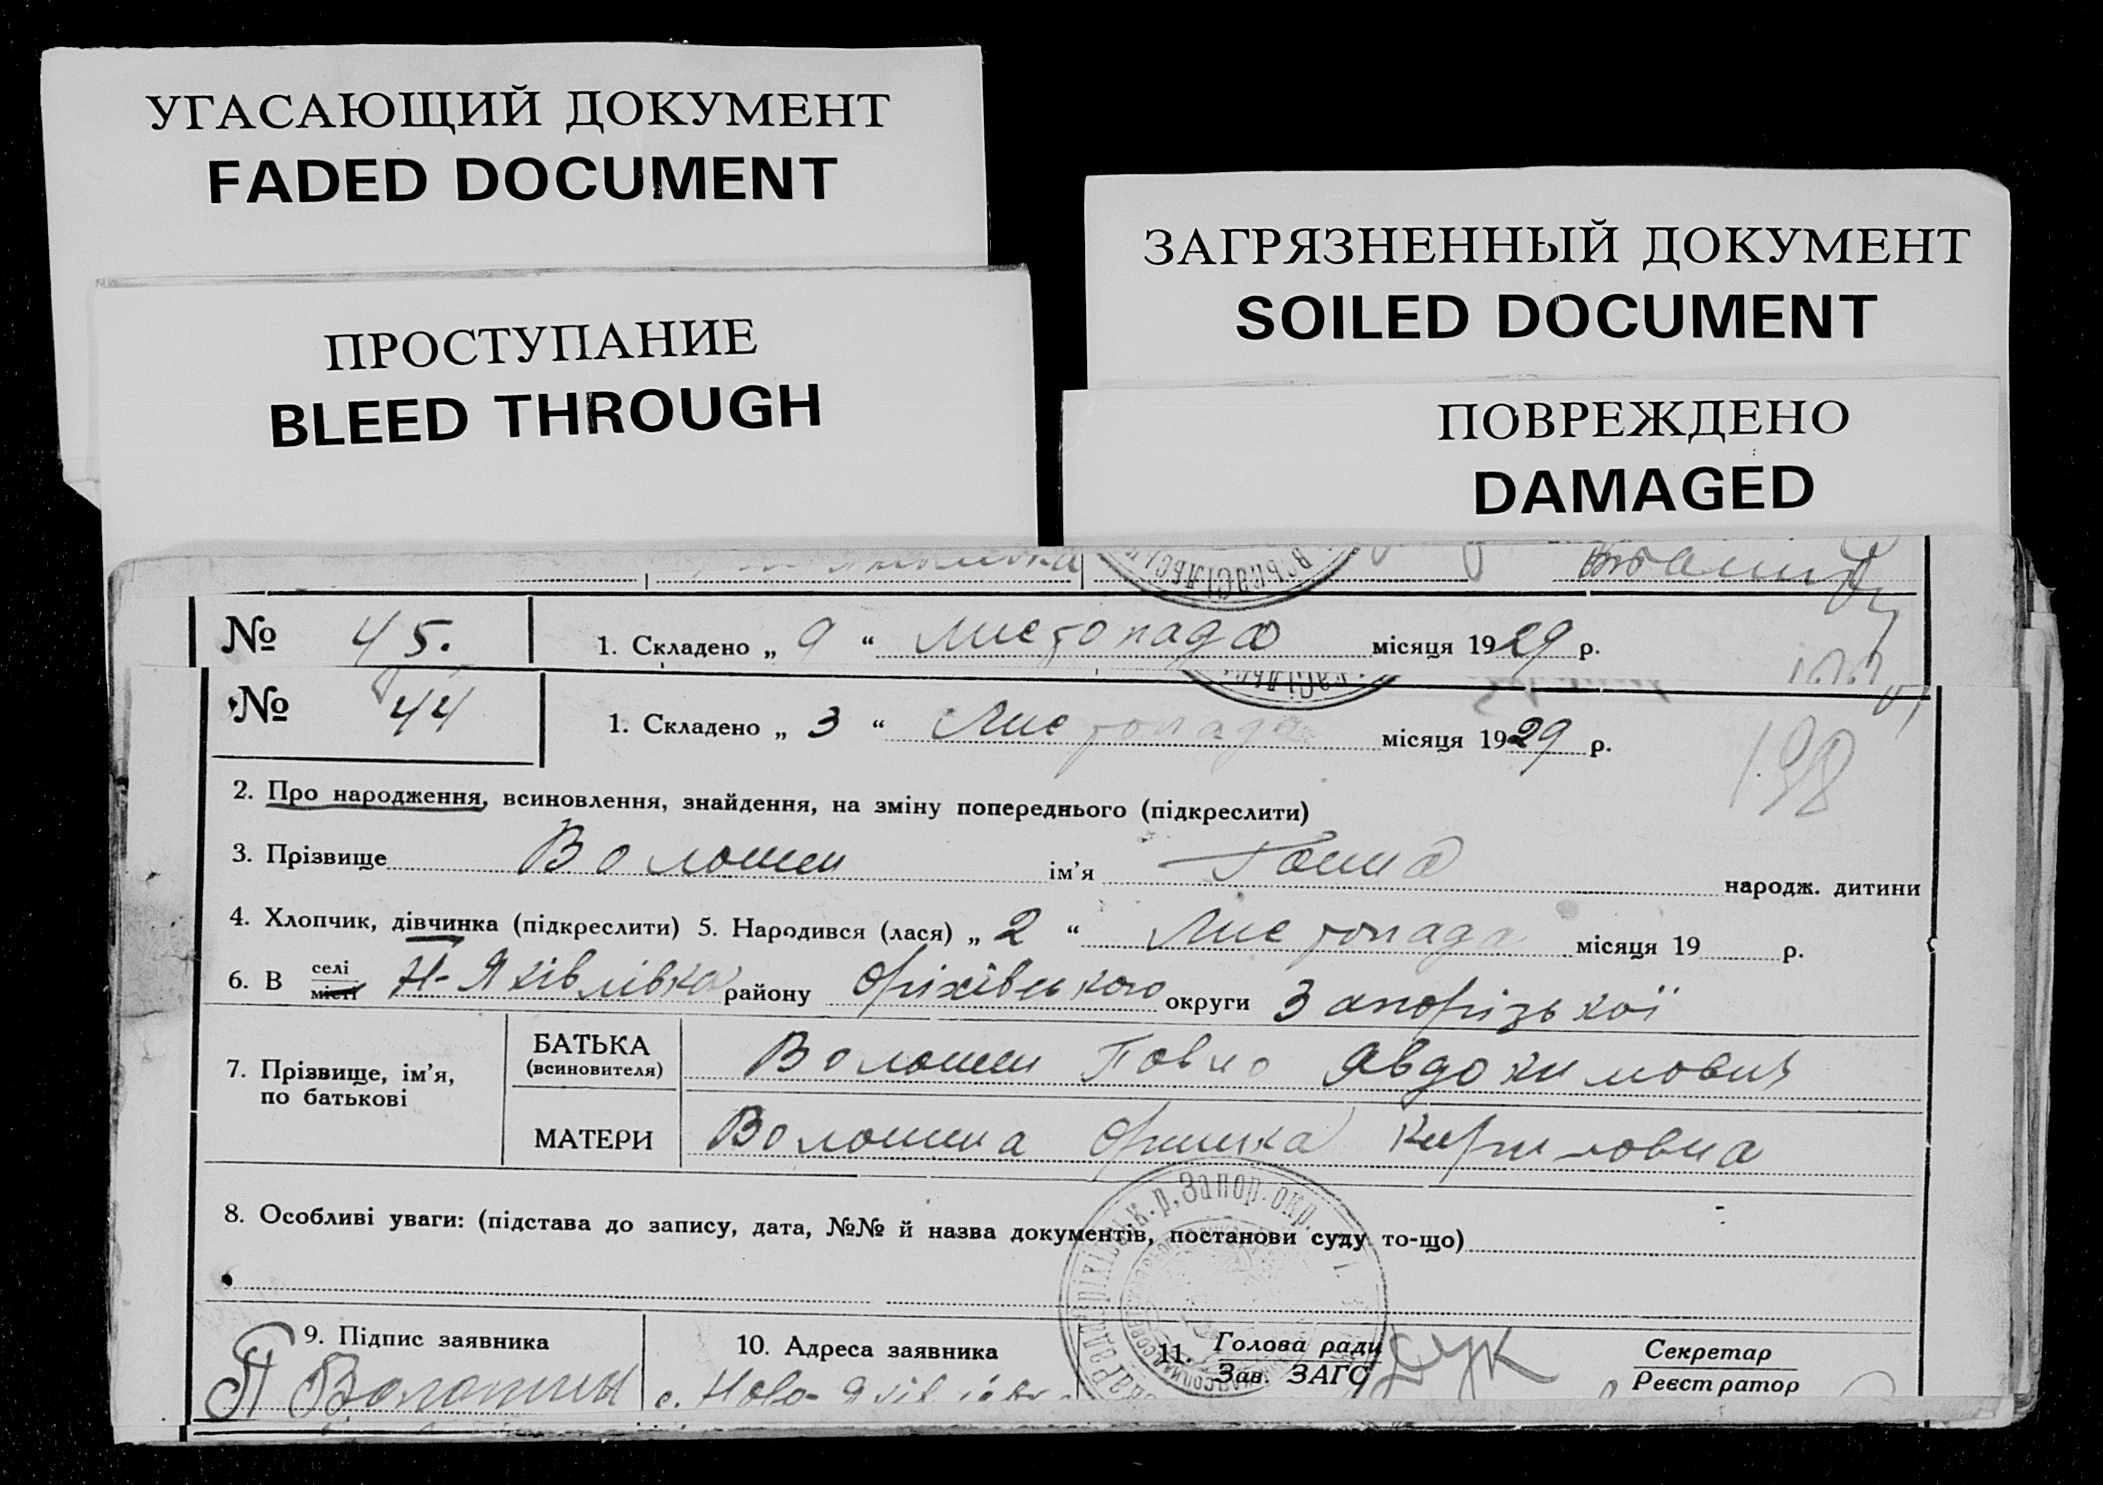 УГАСАЮЩИЙ ДОКУМЕНТ
FADED DOCUMENT
ПРОСТУПАНИЕ
BLEED THROUGH
ЗАГРЯЗНЕННЫЙ ДОКУМЕНТ
SOILED DOCUMENT
ПОВРЕЖДЕНО
DAMAGED
№ 45. 1. Складено „ 9 “ Листопада місяця 1929 р.
№ 44 1. Складено „ 3 “ Листопада місяця 1929 р.
198
2. Про народження, всиновлення, знайдення, на зміну попереднього (підкреслити)
3. Прізвище Волошин ім’я народж. дитини
4. Хлопчик, дівчинка (підкреслити) 5. Народився (лася) „ 2 “ Листопада місяця 19 р.
6. В селі місті Н-Яківлівка району Оріхівського округи Запорізької
7. Прізвище, ім’я, по батькові
БАТЬКА (всиновителя) Волошин Павло Явдокимович
МАТЕРИ Волошина Оришка Кириловна
8. Особливі уваги: (підстава до запису, дата, №№ й назва документів, постанови суду то-що)
9. Підпис заявника 10. Адреса заявника 11. Голова ради Секретар
Зав. ЗАГС Реєстратор
П Волошин с. Ново-Яківлівка